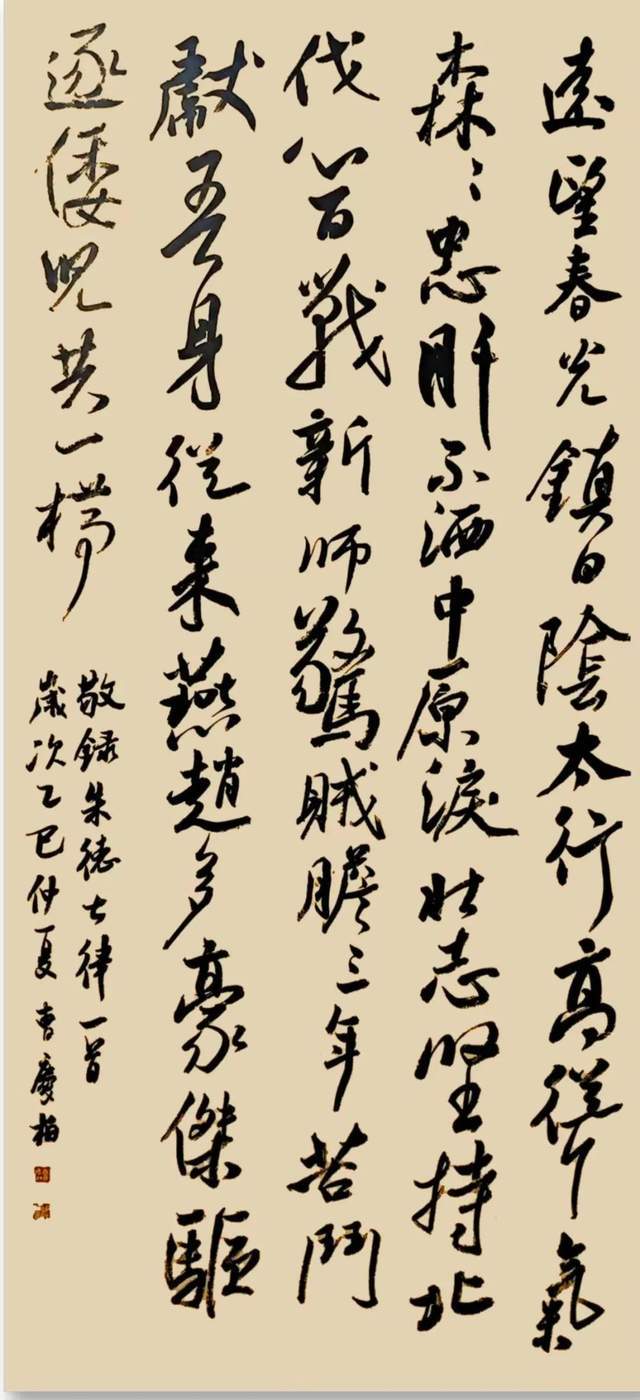 遠望春光鎮日陰太行高聳氣
森〻忠肝不洒中原淚壯志堅持北
伐心百戰新師驚賊膽三年苦鬥
獻吾身從來燕趙多豪傑驅
逐倭兒共一樽
敬録朱德七律一首
歲次乙巳仲夏曹慶柏